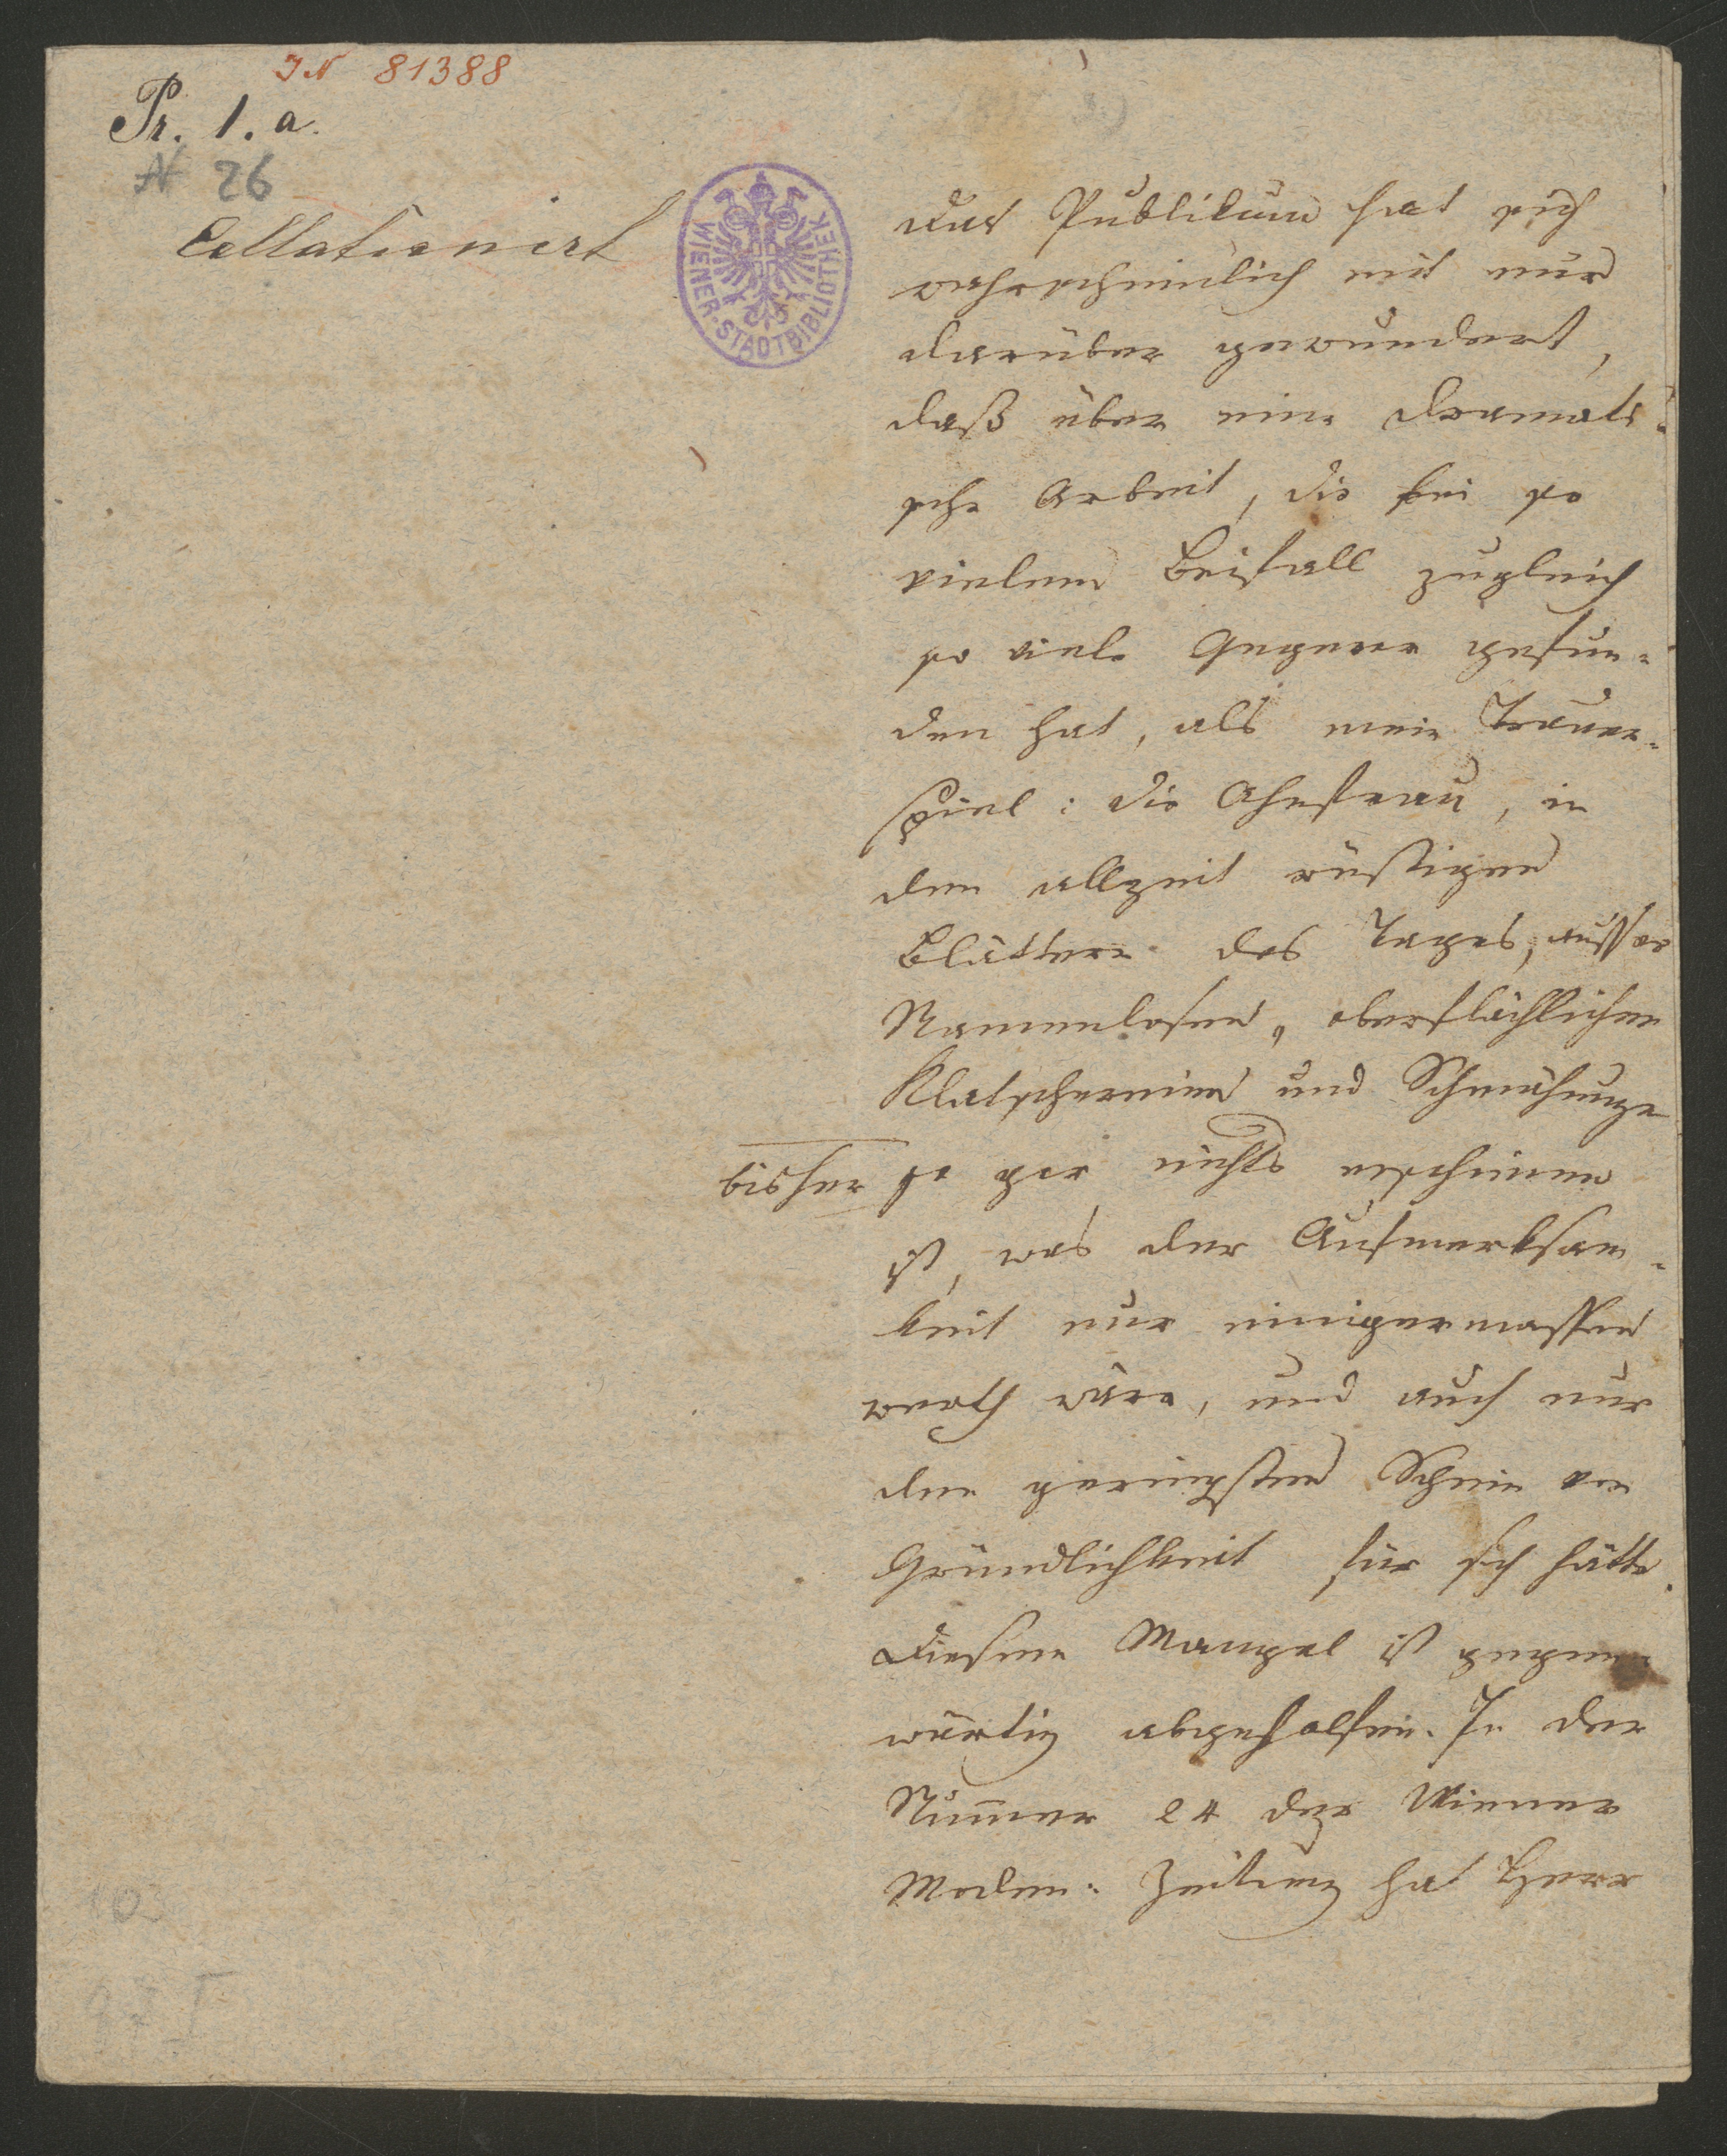 IN 81388
Pr. 1. a.
N 26
Collationirt
WIENER-STADTBIBLIOTHEK
Das Publikum hat sich
wahrscheinlich mit mir
darüber gewundert,
daß über eine dramati-
sche Arbeit, die bei so
vielem Beifall zugleich
so viele Gegner gefun-
den hat, als mein Trauer-
spiel: die Ahnfrau, in
den allzeit rüstigen
Blättern des Tages, ausser
Namenlosen, oberflächlichen
Klatschereien und Schmähungen
bisher so gar nichts erschienen
ist, was der Aufmerksam-
keit nur einigermassen
werth wäre, und auch nur
den geringsten Schein von
Gründlichkeit für sich hätte.
Diesem Mangel ist gegen-
wärtig abgeholfen. In der
Nummer 24 der Wiener
Moden-Zeitung hat Herr
103